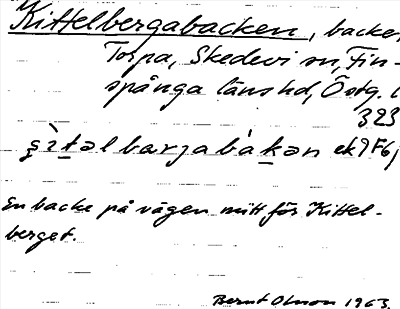 Kittelbergabacken, backe,
Torpa, Skedevi sn, Fin-
spånga länshd, Östg. l
323
bàkən
En backe på vägen mitt för Kittel-
berget.
Bernt Olsson 1963.